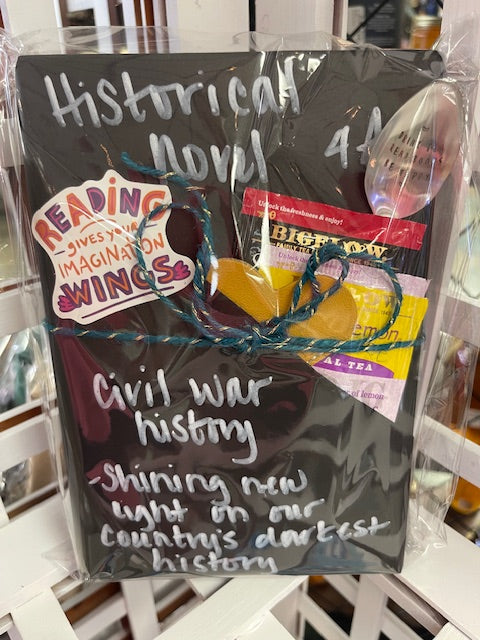 Historical
Novel
READING
GIVES YOUR
IMAGINATION
WINGS
Unlock the freshness & enjoy!
BIGELOW
lemon
AL TEA
of lemon
Civil War
history
-Shining new
light on our
country's darkest
history